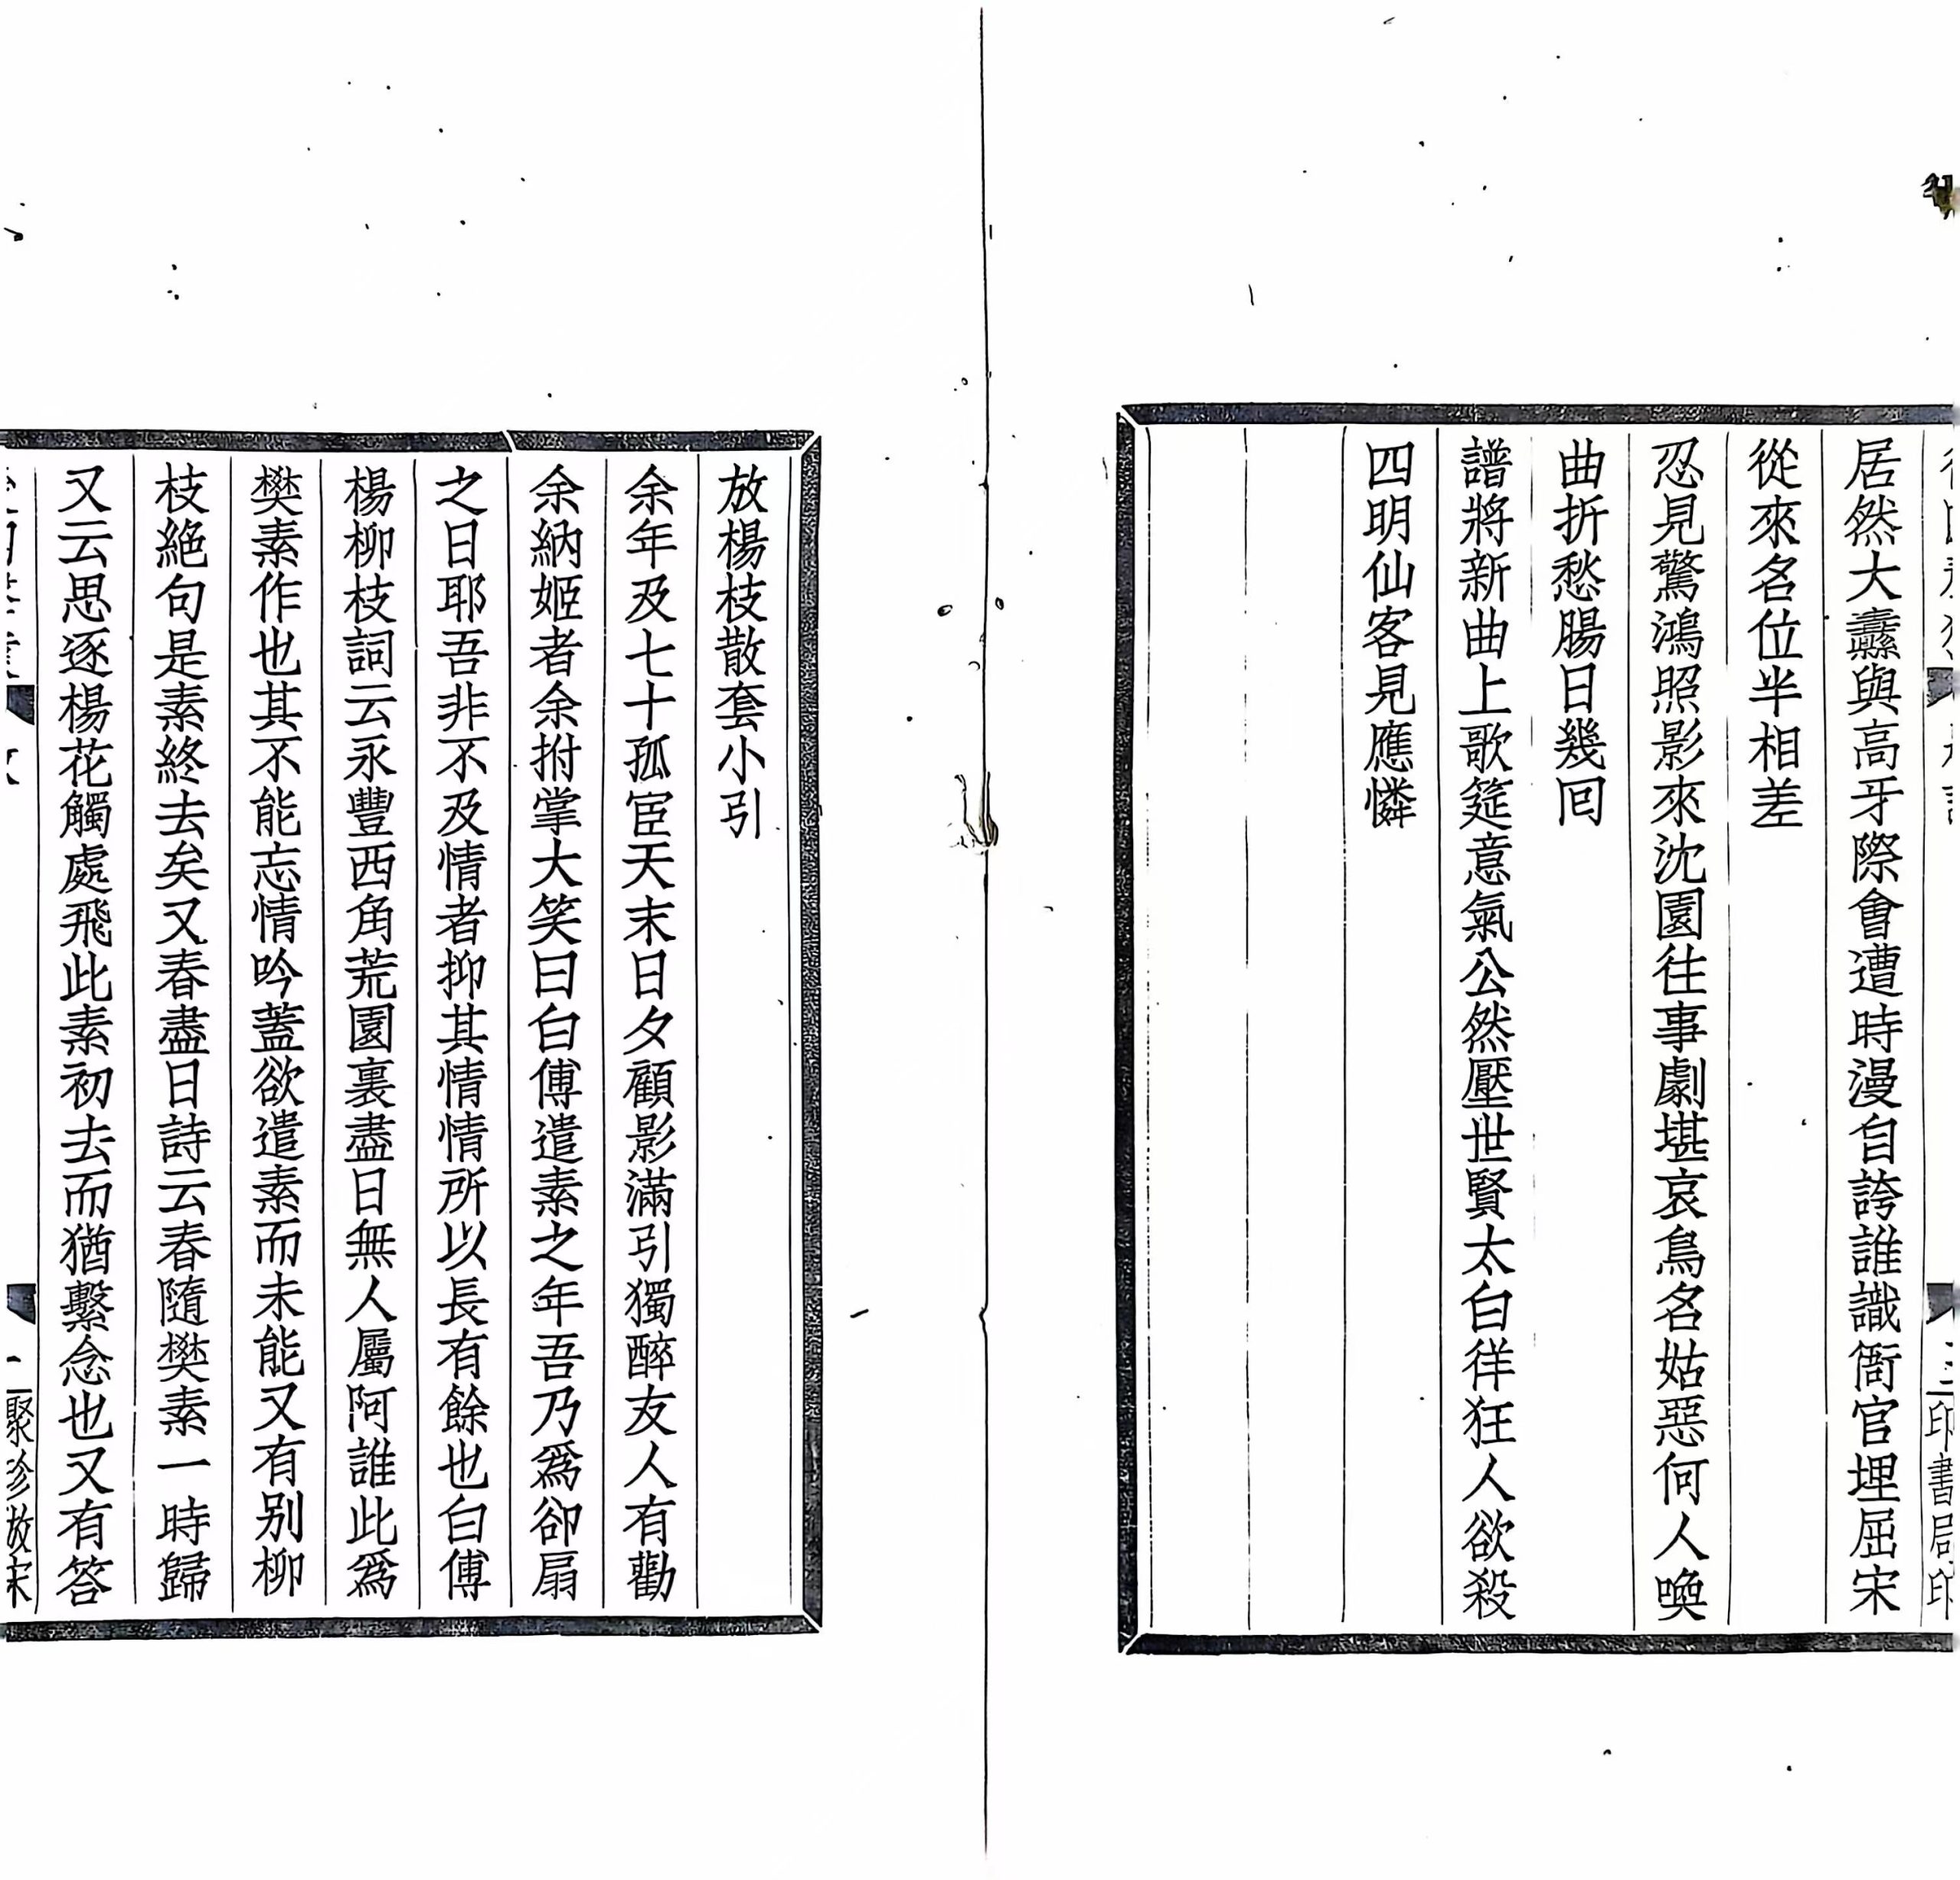 居然大纛與高牙際會遭時漫自誇誰識衙官埋屈宋
從來名位半相差
忍見驚鴻照影來沈園往事劇堪哀鳥名姑惡何人喚
曲折愁腸日幾回
譜將新曲上歌筵意氣公然壓世賢太白徉狂人欲殺
四明仙客見應憐
印書局印
放楊枝散套小引
余年及七十孤宦天末日夕顧影滿引獨醉友人有勸
余納姬者余拊掌大笑曰白傅遣素之年吾乃爲卻扇
之日耶吾非不及情者抑其情情所以長有餘也白傅
楊柳枝詞云永豐西角荒園裏盡日無人屬阿誰此爲
樊素作也其不能忘情吟蓋欲遣素而未能又有別柳
枝絕句是素終去矣又春盡日詩云春隨樊素一時歸
又云思逐楊花觸處飛此素初去而猶繫念也又有答
聚珍倣宋